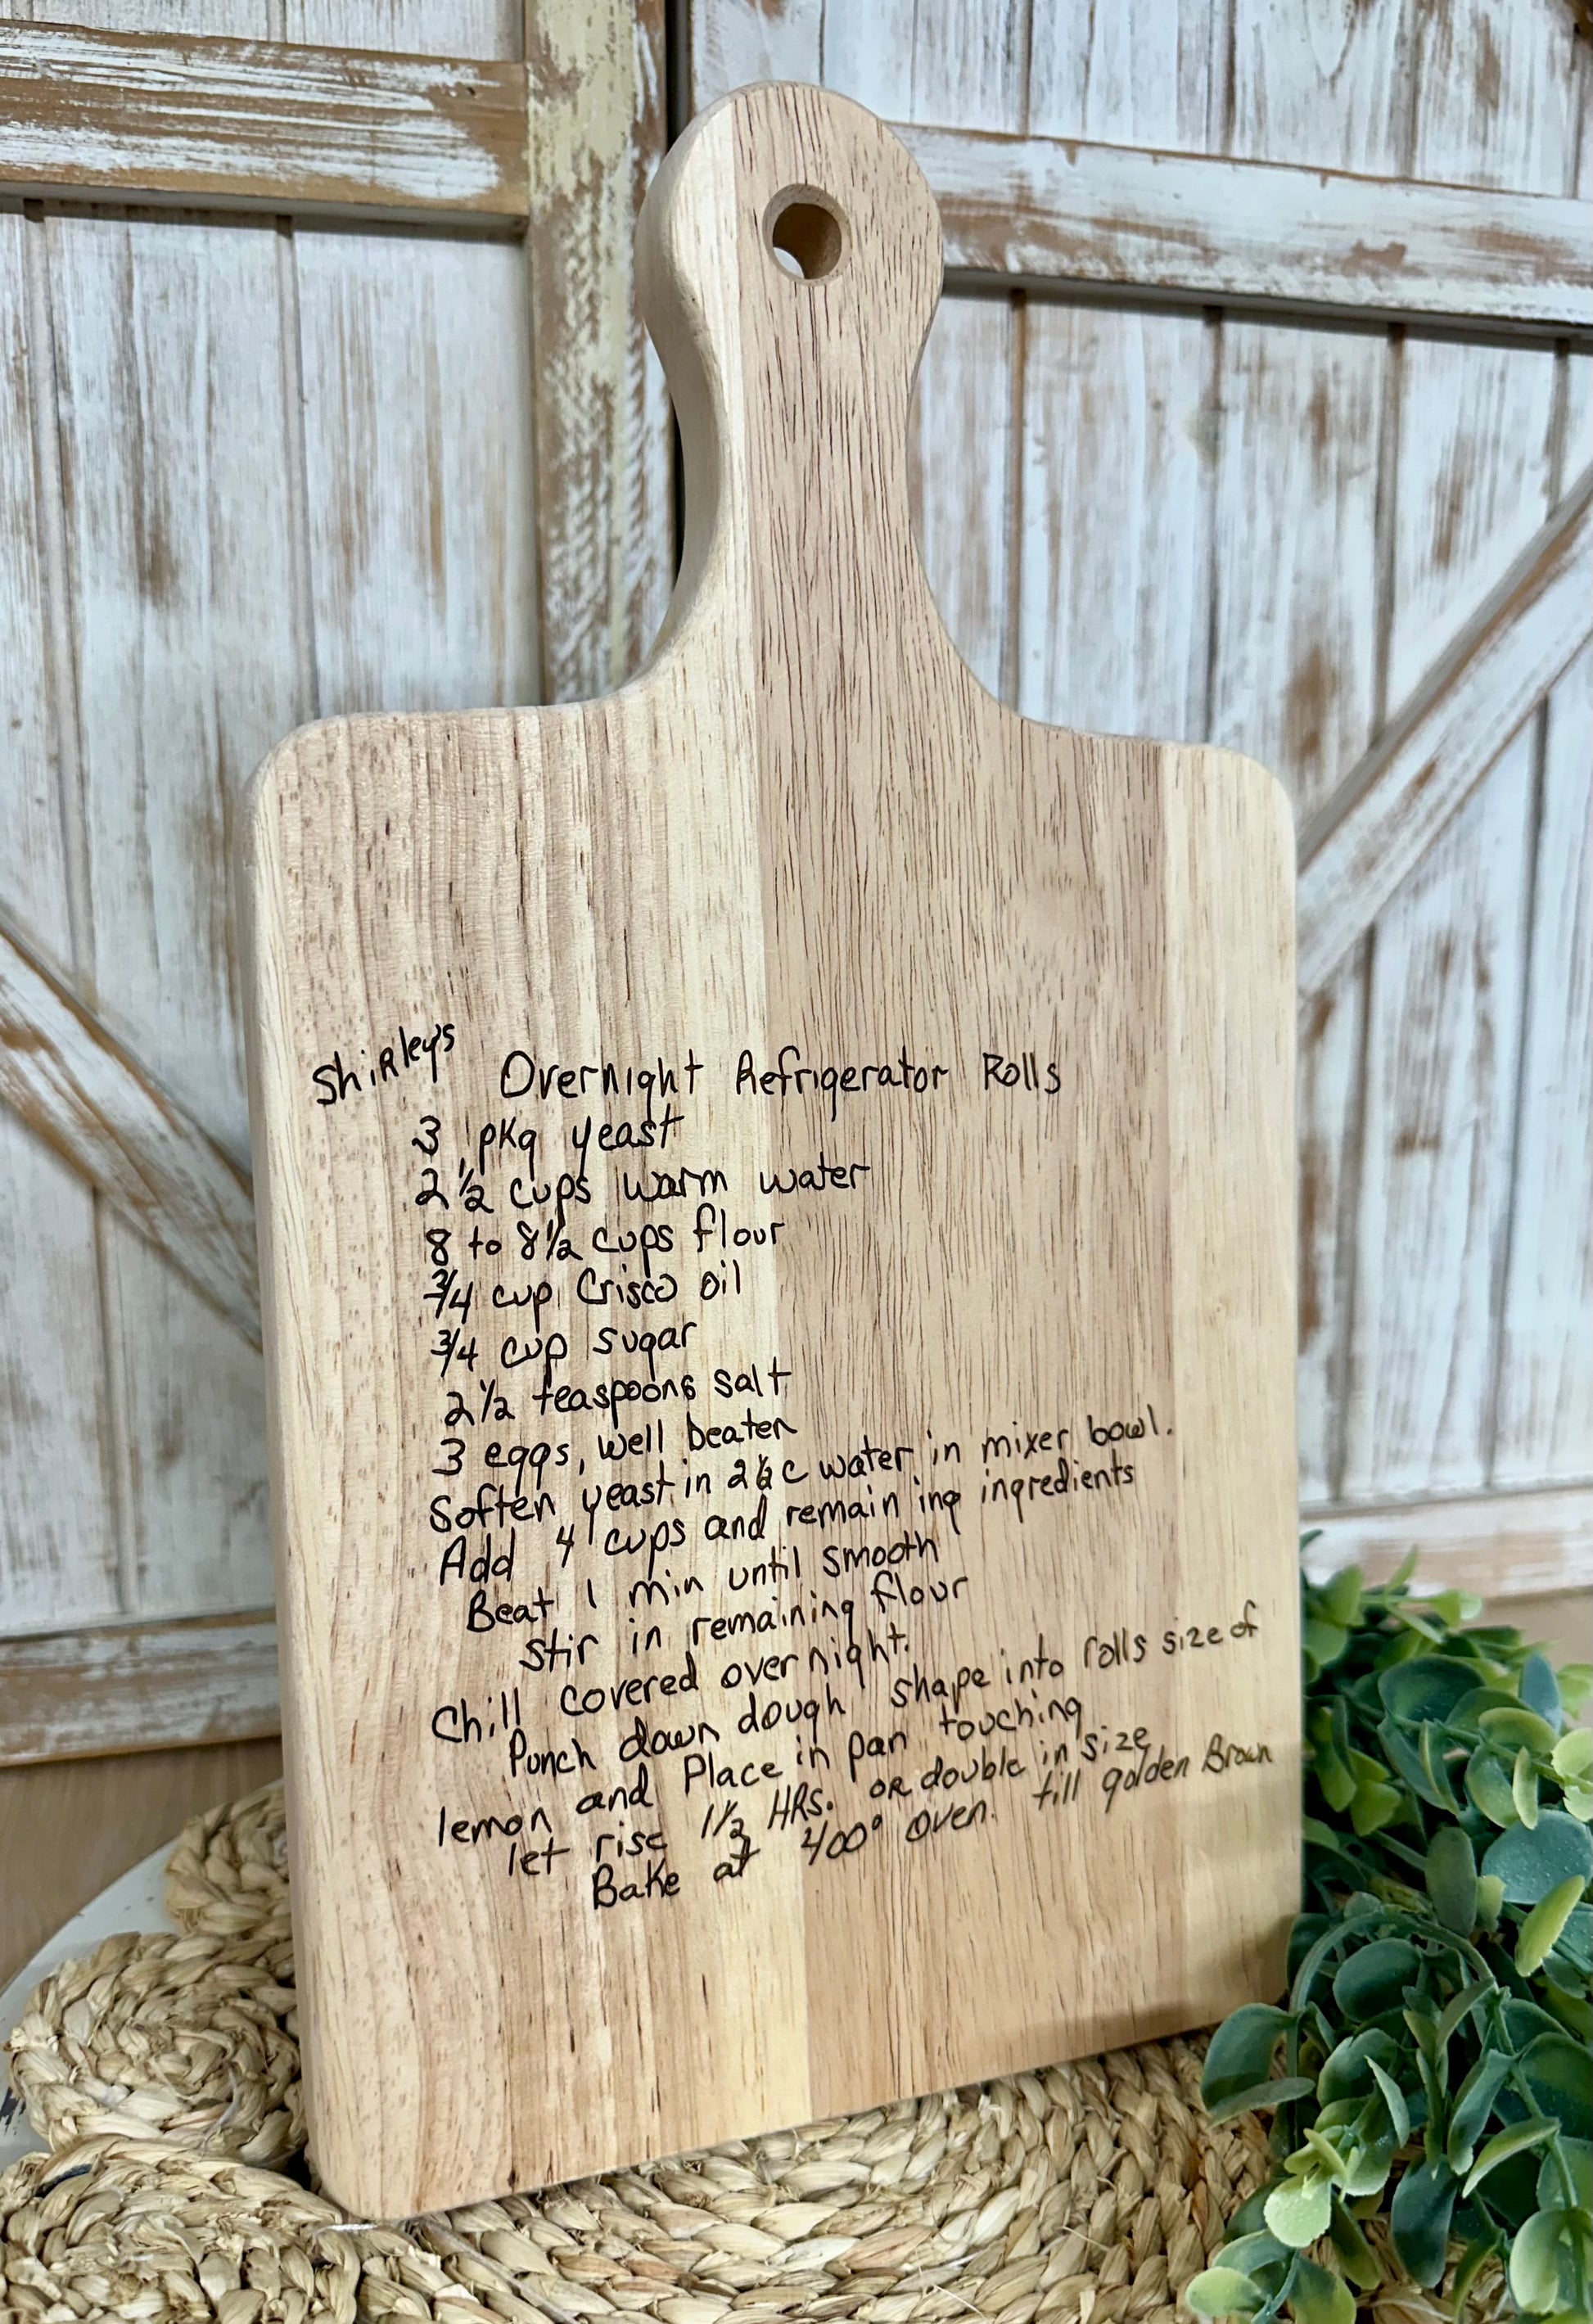 Shirleys Overnight Refrigerator Rolls
3 pkg yeast
2 1/2 cups warm water
8 to 8 1/2 cups flour
3/4 cup Crisco oil
3/4 cup sugar
2 1/2 teaspoons salt
3 eggs, well beaten
Soften yeast in 2 1/2 c water in mixer bowl.
Add 4 cups and remaining ingredients
Beat 1 min until smooth
stir in remaining flour
Chill covered overnight.
Punch down dough shape into rolls size of
lemon and Place in pan touching
let rise 1 1/2 HRS. or double in size
Bake at 400° oven. till golden Brown